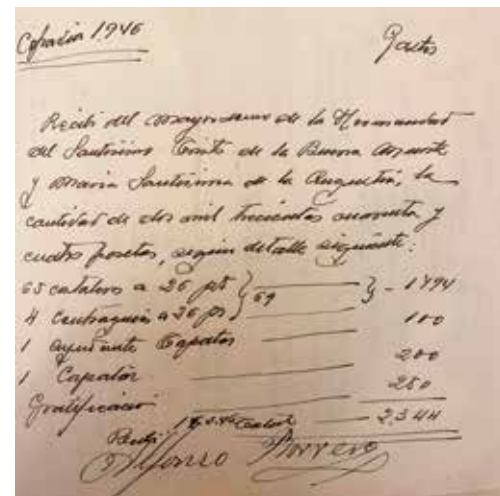 Cofradia 1946 Gastos
Recibi del Mayordomo de la Hermandad
del Santísimo Cristo de la Buena Muerte
y María Santísima de la Angustia, la
cantidad de dos mil trescientas cuarenta y
cuatro pesetas, según detalle siguiente:
65 costaleros a 26 pts } 69 } - 1794
4 Contraguías a 26 ps
1 ayudante Capataz 100
1 Capataz 200
Gratificación 250
2,344
Recibí
Alfonso Borrero